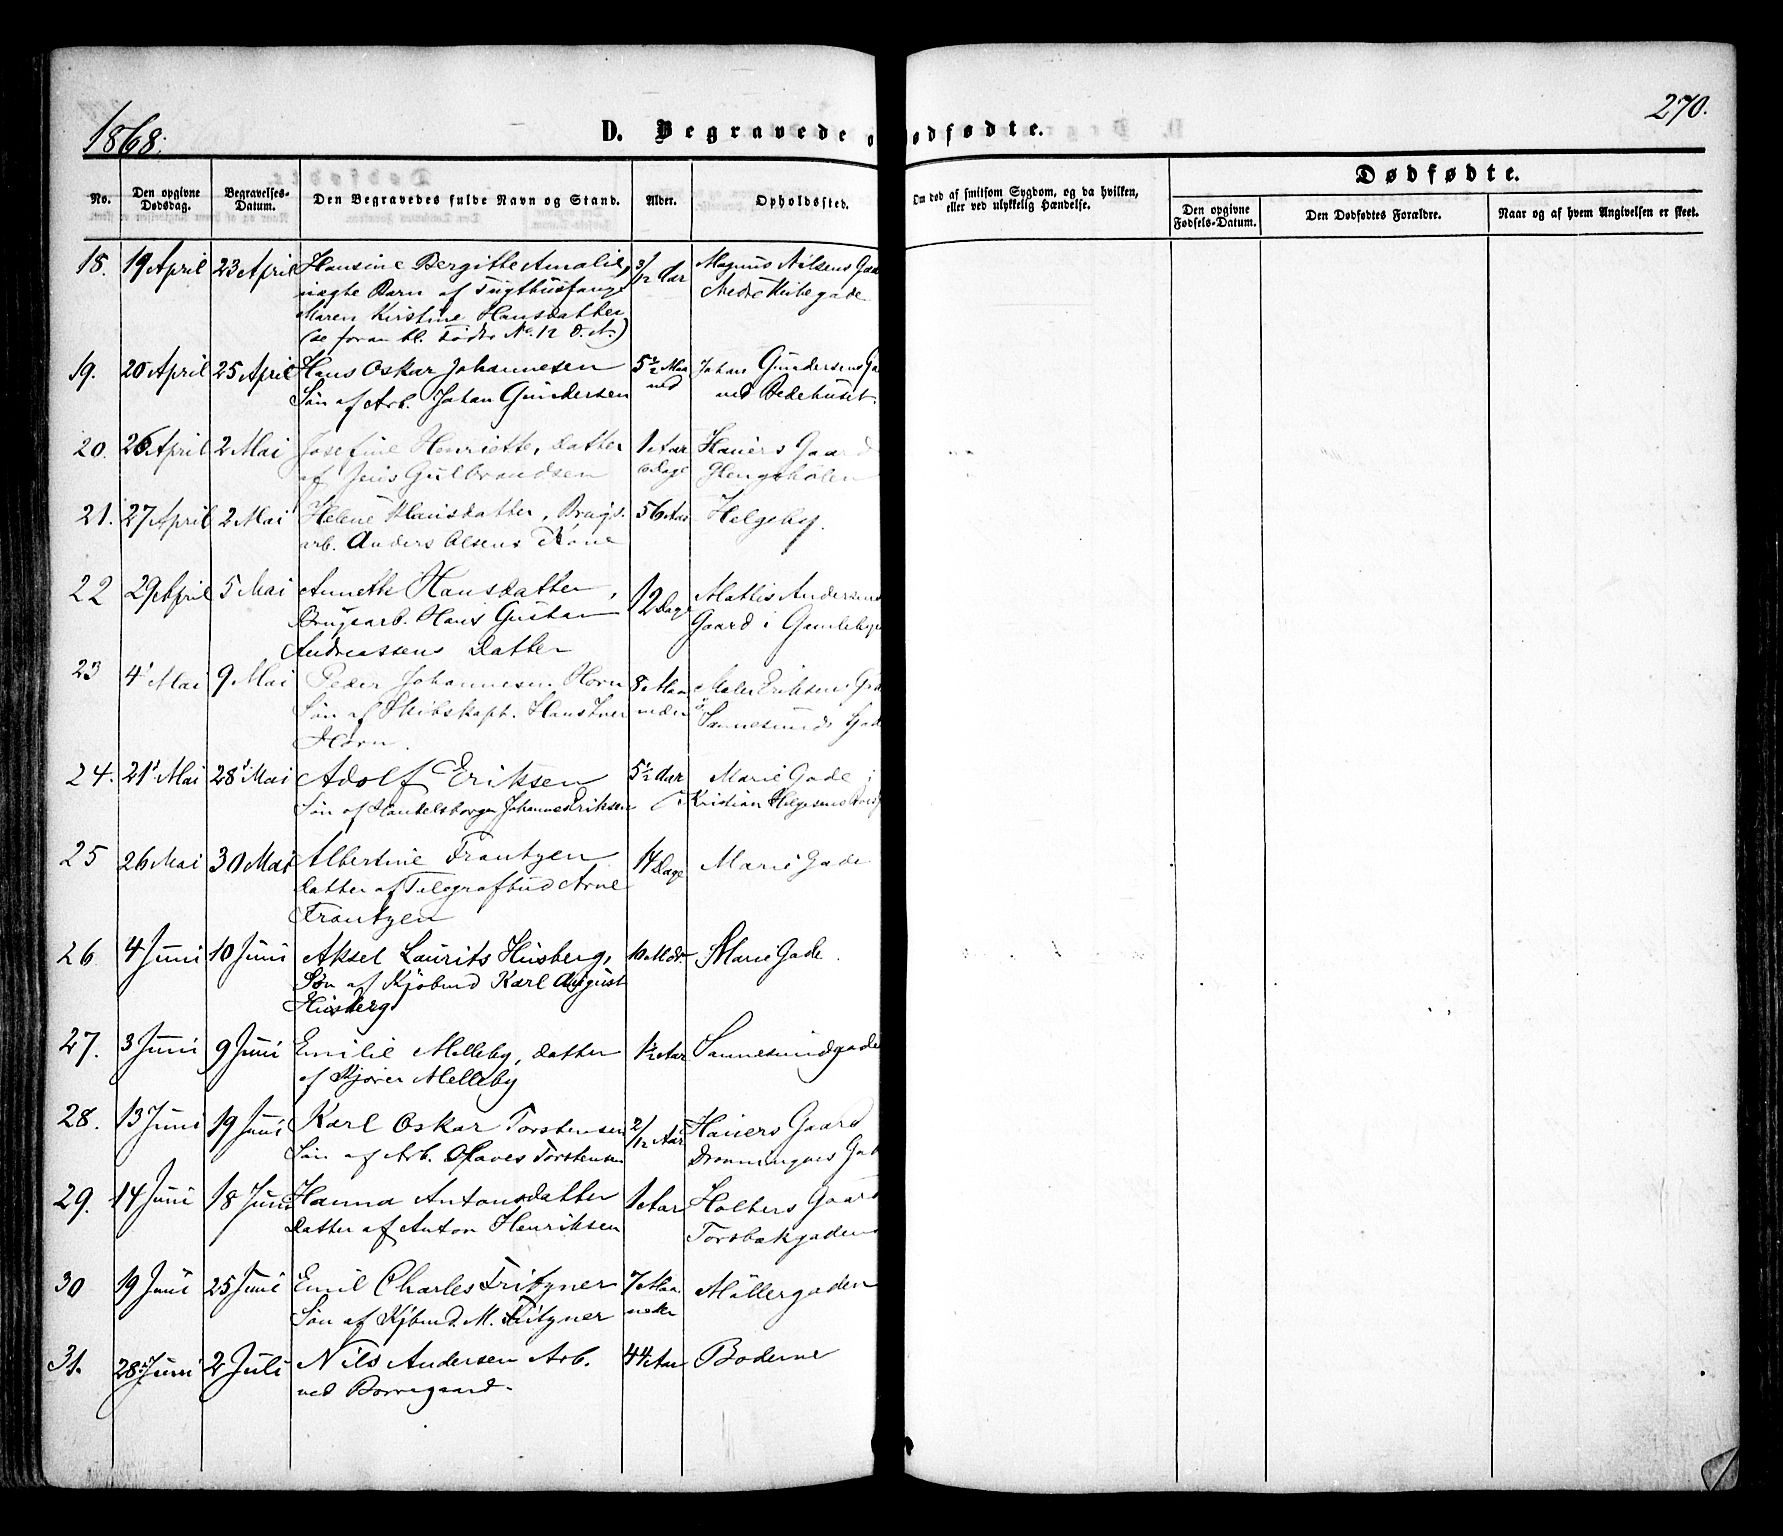 1868.
D. Begravede o
ødfødte.
270.
No.
Den opgivne Dødsdag.
Begravelses-Datum.
Den Begravedes fulde Navn og Stand.
Alder.
Opholdssted.
Om død af smitsom Sygdom, og da hvilken, eller ved ulykkelig Hændelse.
Dødfødte.
Den opgivne Fødsels-Datum.
Den Dødfødtes Forældre.
Naar og af hvem Angivelsen er skeet.
18. 19 April 23 April Hansine Bergitte Amalie, 3/12 Aar Magnus Nilsens Gaa
uægte Barn af Tugthusfange Nedre
Maren Kirstine Hansdatter
(se foran bl. Fødte No. 12 d. A.)
19. 20 April 25 April Hans Oskar Johannesen 5½ Maa Johan Gundersens Ga
Søn af Arb. Johan Gundersen ned ved Bedehuset.
20. 26 April 2 Mai Josefine Henriette, Datter 1 Aar Hauers Gaard
af Jens Gulbrandsen 6 Dage Glengshølen
21. 27 April 2 Mai Helene Hansdatter, Brugs- 56 Aar Helgeby.
arb. Anders Olsens Kone
22 29 April 5 Mai Annette Hansdatter, 12 Dage Mattis Andersens
Brugsarb. Hans Gustav Gaard i Gamlebyen
Andreassens Datter
23 4 Mai 9 Mai Peder Johannesen Horn 8 Maa Maler Eriksens Ga
Søn af Skibskapt. Hans Iver neder i Sannesunds Gad
Horn.
24. 21 Mai 28 Mai Adolf Eriksen 5½ Aar Marie Gade i
Søn af Handelsborger Johannes Eriksen Kristian Helgesens
25 26 Mai 30 Mai Albertine Frantzen 14 Dage Marie Gade
Datter af Telegrafbud Arne
Frantzen
26 4 Juni 10 Juni Aksel Laurits Husberg, 10 Mdr Marie Gade.
Søn af Kjøbmd Karl August
Husberg
27. 3 Juni 9 Juni Emilie Melleby, Datter 1½ Aar Sannesundgade
af Kjører Melleby
28. 13 Juni 19 Juni Karl Oskar Torstensen 2/12 Aar Hauers Gaard
Søn af Arb. Olaves Torstensen Dronningens Gad
29. 14 Juni 18 Juni Hanna Antonsdatter 1 Aar Holters Gaard
Datter af Anton Henriksen Torsbækgaden
30 19 Juni 25 Juni Emil Charles Fritzner 7 Maa Møllergaden
Søn af Kjbmd. M. Fritzner neder
31. 28 Juni 2 Juli Nils Andersen Arb. 44 Aar Boderne
ved Borregaard.